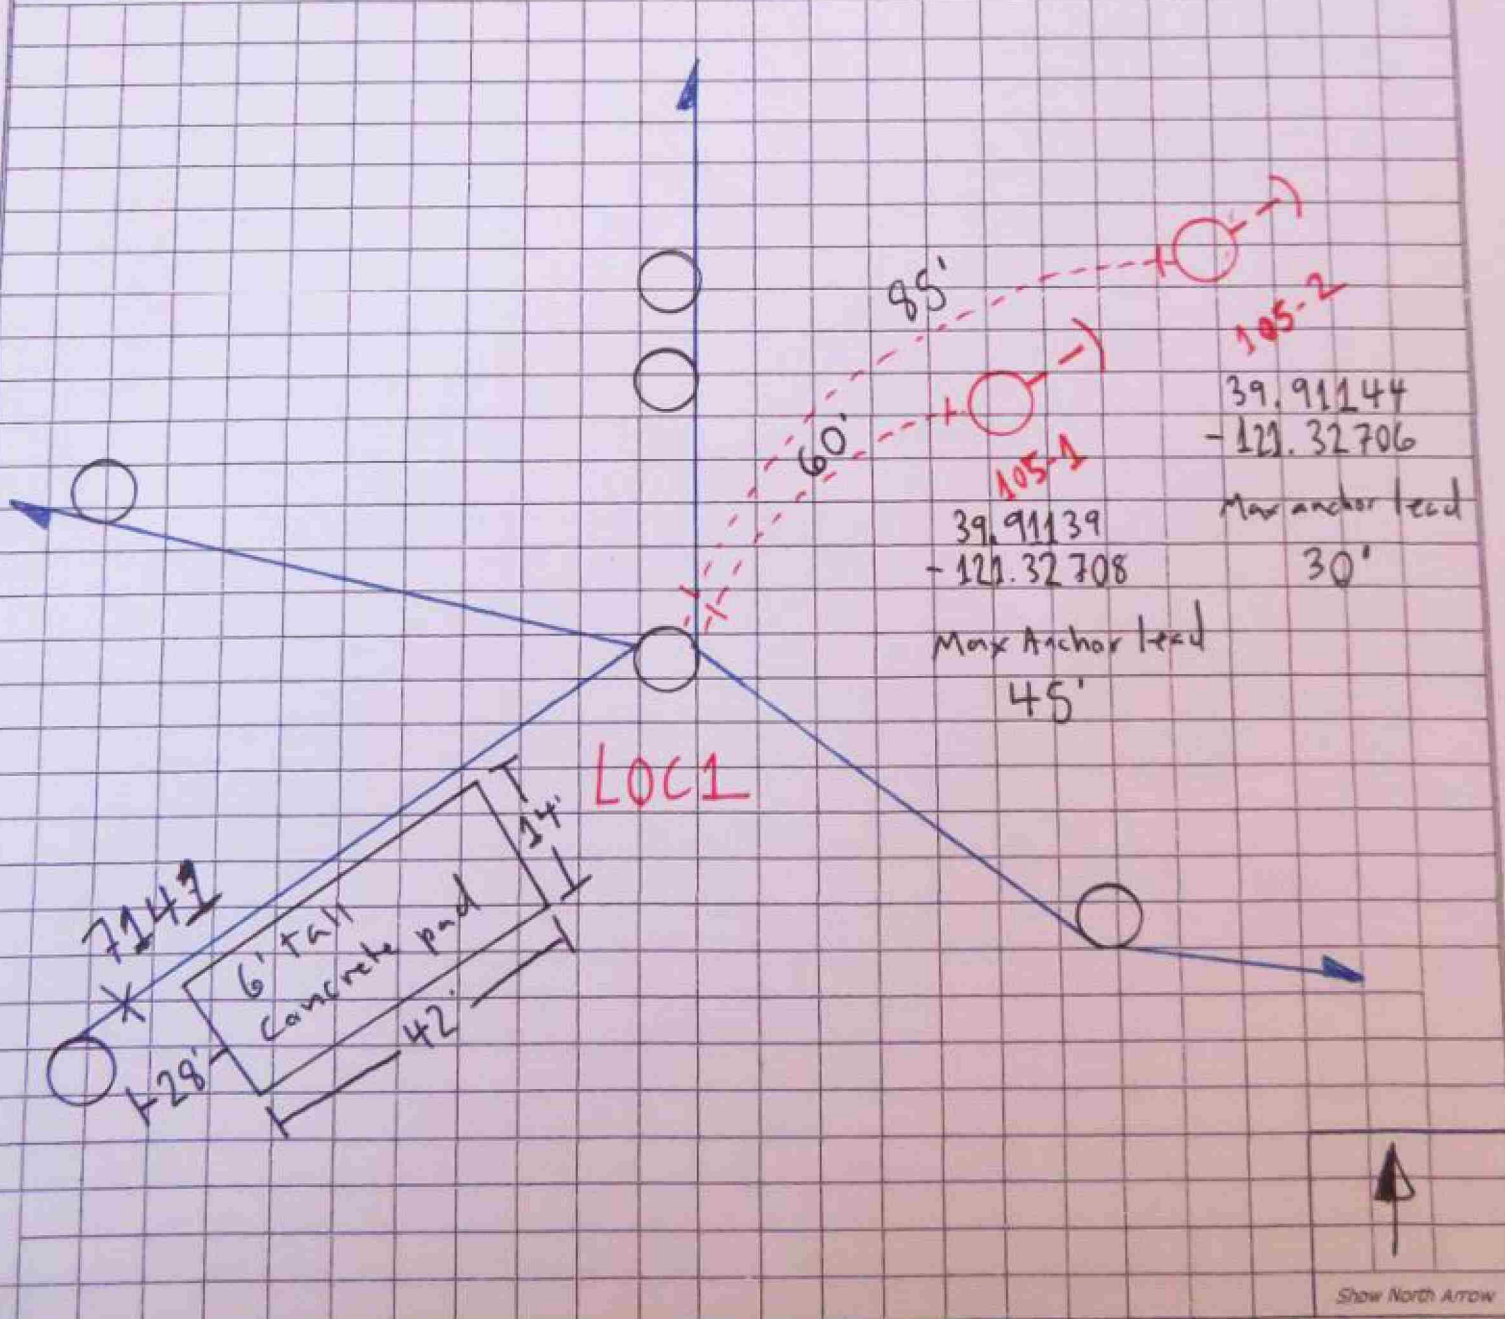 85'
105-2
60'
39.91144
-121.32706
105-1
Max anchor lead
30'
39.91139
-121.32708
Max Anchor lead
45'
LOC1
14'
7141
6' tall
concrete pad
42'
28'
Show North Arrow